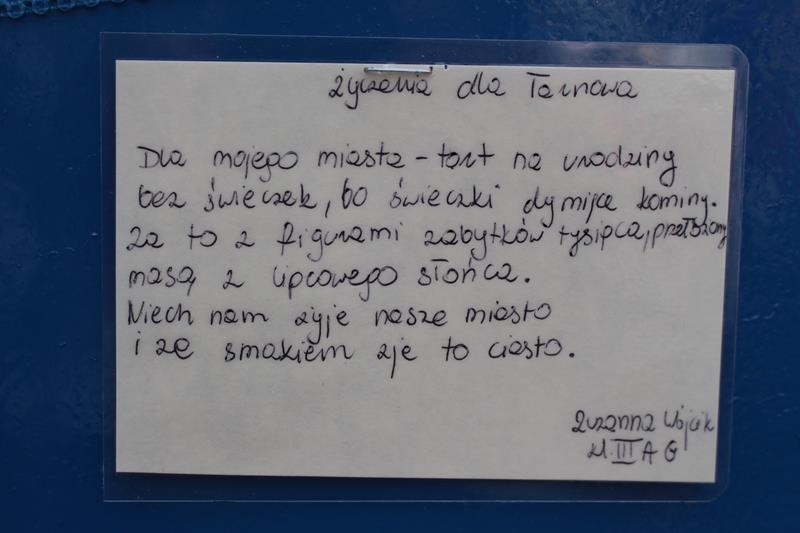 życzenia dla Tarnowa
Dla mojego miasta - tort na urodziny
bez świeczek, bo świeczki dymiące kominy.
Za to z figurami zabytków tysiąca, przełożony
masą z lipcowego słońca.
Niech nam żyje nasze miasto
i ze smakiem zje to ciasto.
Zuzanna Wójcik
kl. III A G